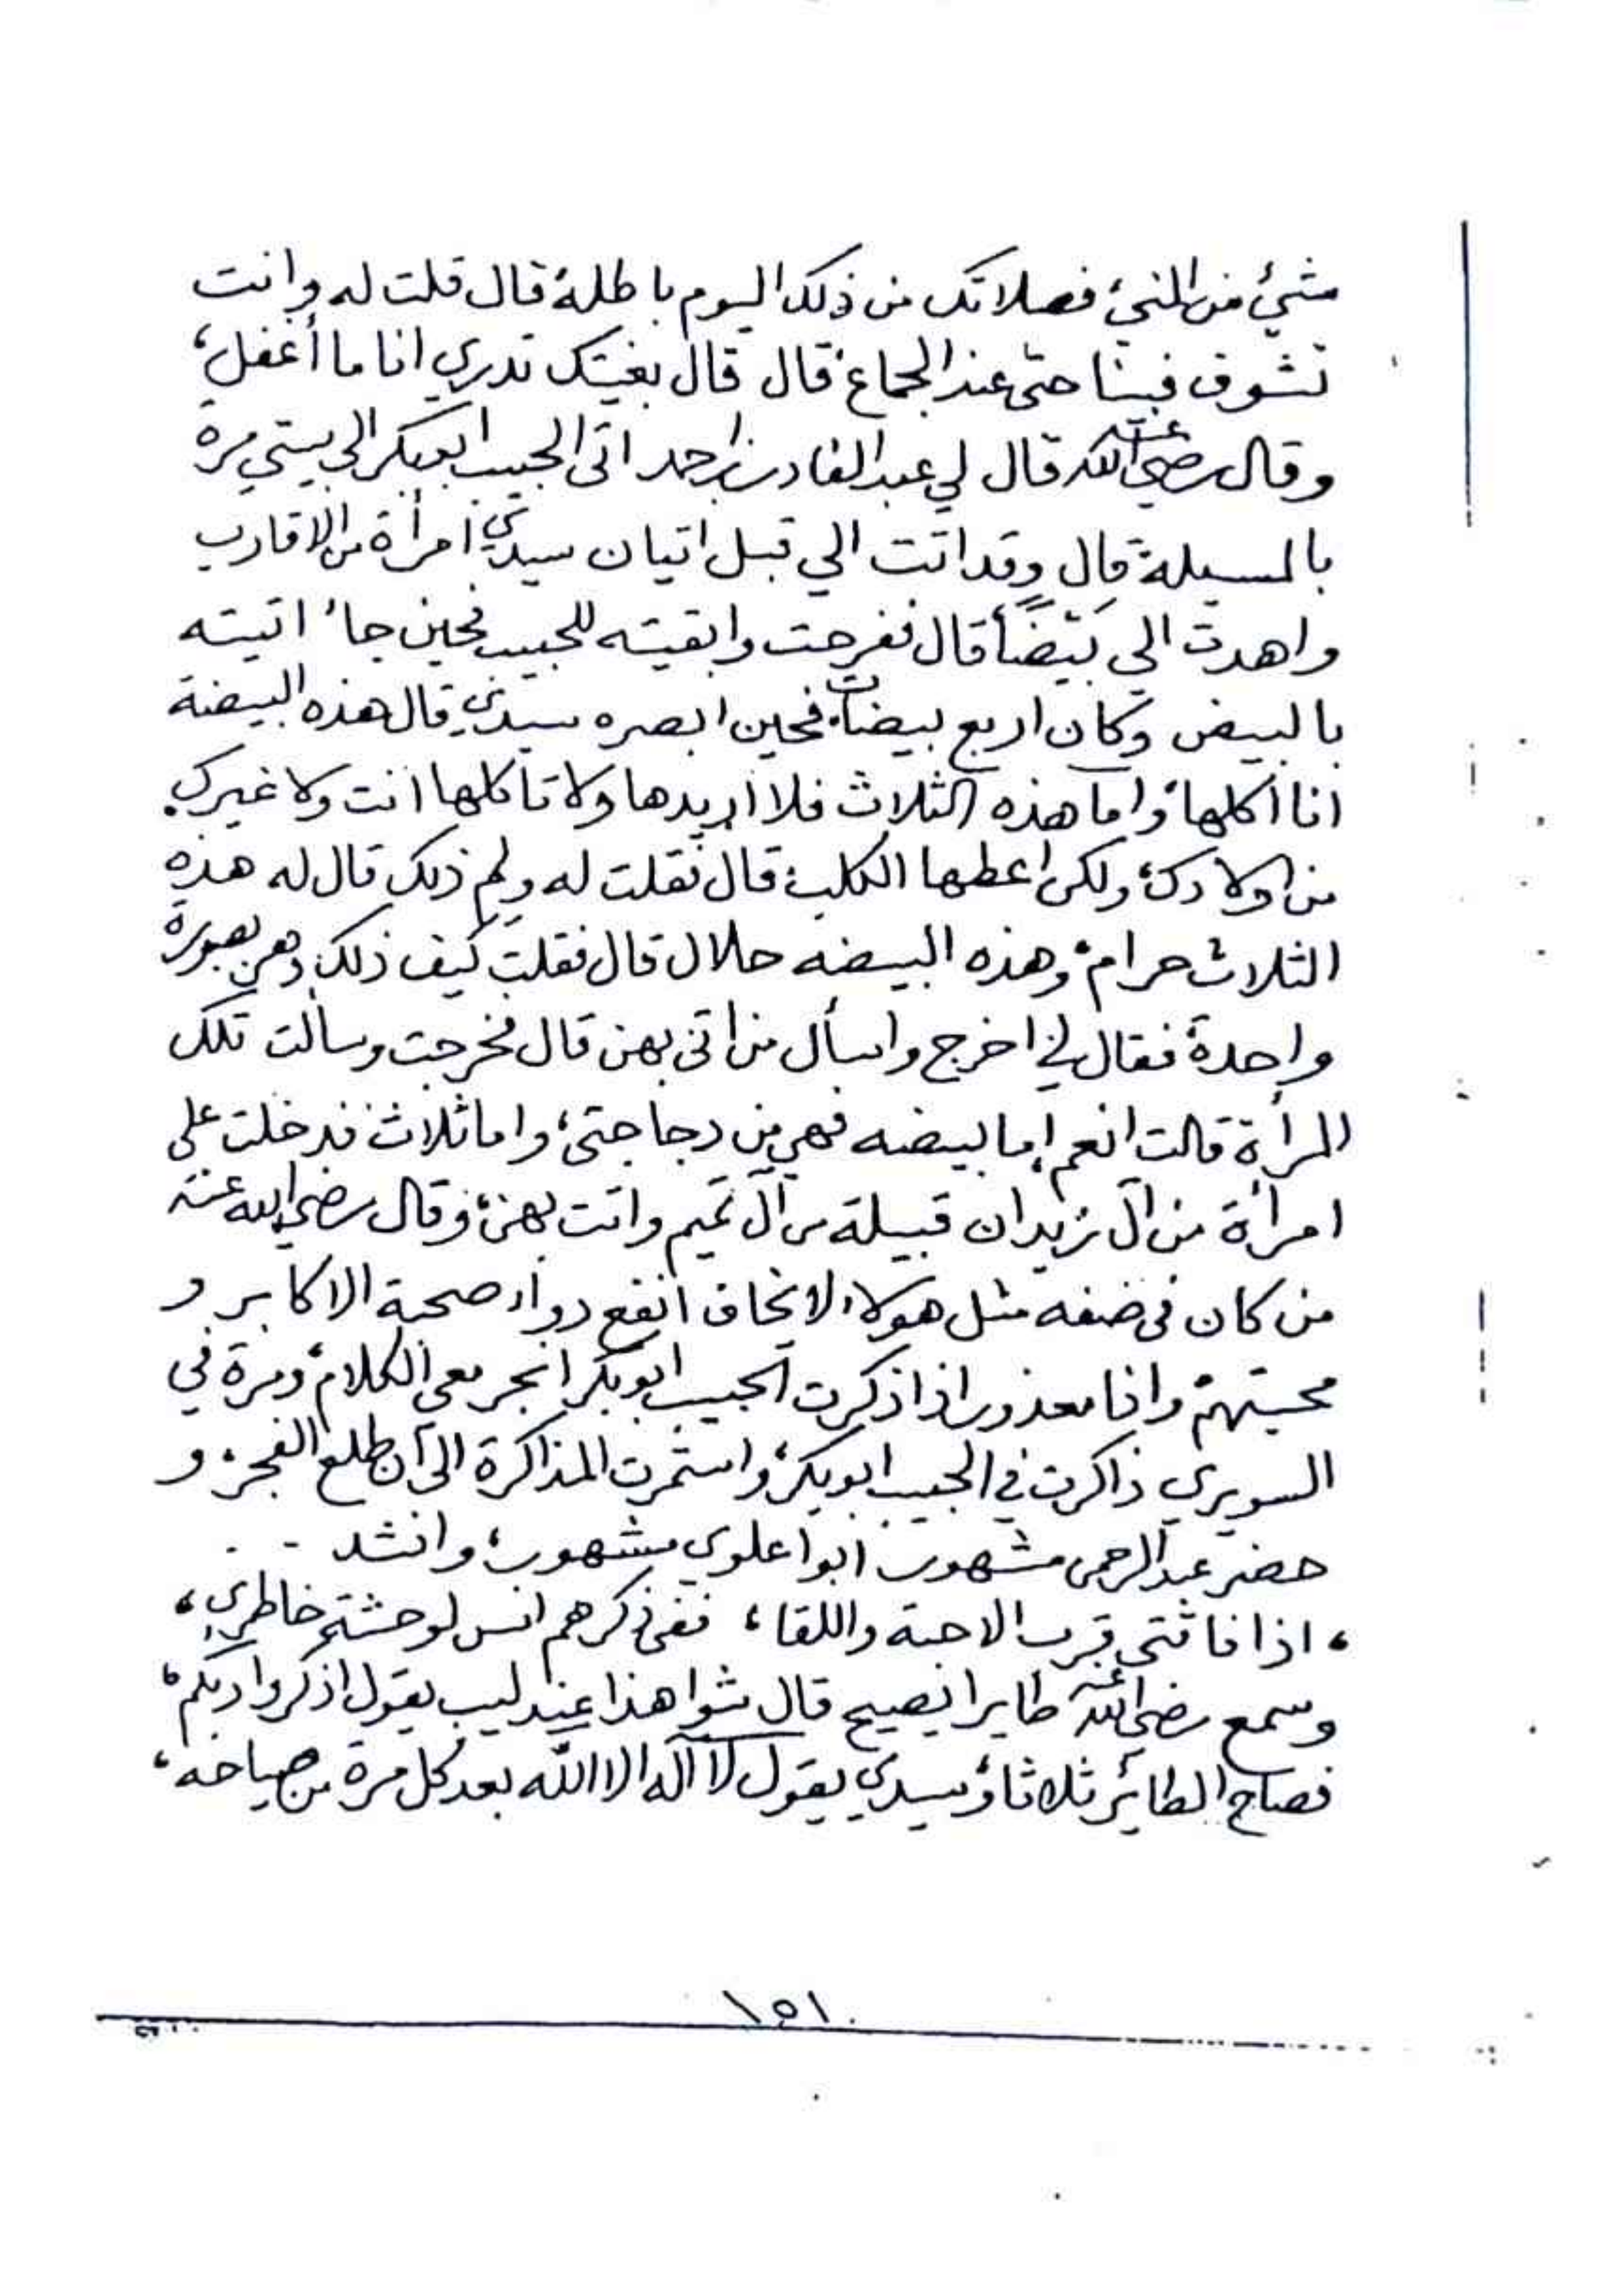 شيئ من المنيّ، فصلاتك من ذلك اليوم باطلة قال قلت له وانت
تشوف فينا حتى عند الجماع، قال قال بغيتك تدري انا ما أغفل،
وقال رضي الله عنه قال لي عبدالقادر بن احمد اتى الحبيب ابوبكر الى بيتي مرة
بالمسيلة قال وقد اتت الي قبل اتيان سيدي امرأة من الاقارب
واهدت الي بَيْضاً قال ففرحت وابقيته للحبيب فحين جاء اتيته
بالبيض وكان اربع بيضات، فحين ابصره سيدي قال هذه البيضة
انا اكلها، واما هذه الثلاث فلا اريدها ولا تاكلها انت ولا غيرك
من اولادك، ولكن اعطها الكلب، قال فقلت له ولم ذلك قال له هذه
الثلاث حرام، وهذه البيضه حلال قال فقلت كيف ذلك وهن بصورة
واحدة، فقال لي اخرج واسأل من اتى بهن قال فخرجت وسالت تلك
المرأة قالت انعم اما بيضه فهي من دجاجتي، واما ثلاث فدخلت على
امرأة من آل زيدان قبيلة من آل تميم واتت بهن، وقال رضي الله عنه
من كان في ضنفه مثل هولاء لا يخاف انفع دواء صحبة الاكابر و
محبتهم، وانا معذور اذا ذكرت الحبيب ابوبكر انجر معي الكلام، ومرة في
السويري ذاكرت في الحبيب ابوبكر، واستمرت المذاكرة الى آن طلع الفجر، و
حضر عبدالرحمن مشهور، ابوا علوي مشهور، وانشد . .
، اذا فاتني قرب الاحبة واللقا ، ففي ذكرهم انس لوحشة خاطري ،
وسمع رضي الله عنه طايرا يصيح قال شوا هذا عندليب يقول اذكروا ربكم،
فصاح الطائر ثلاثا، وسيدي يقول لا آله الا الله بعد كل مرة من صياحه،
١٥١